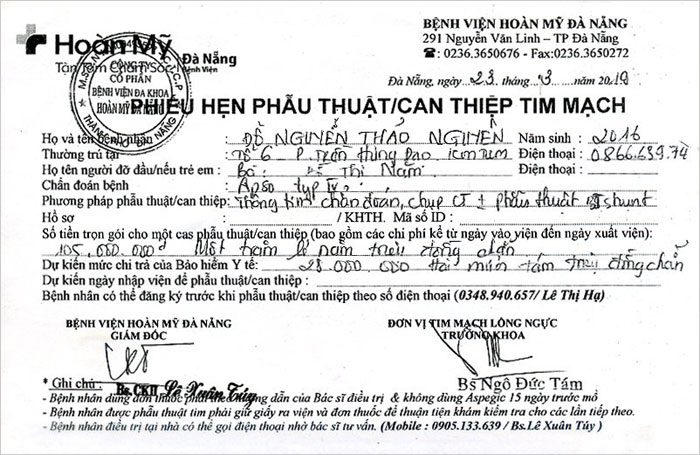 Hoàn Mỹ Đà Nẵng
Bệnh Viện
Tận Tâm Chăm Sóc
CÔNG TY
CỔ PHẦN
BỆNH VIỆN ĐA KHOA
HOÀN MỸ ĐÀ NẴNG
BỆNH VIỆN HOÀN MỸ ĐÀ NẴNG
291 Nguyễn Văn Linh – TP Đà Nẵng
☎: 0236.3650676 - Fax:0236.3650272
Đà Nẵng, ngày 23 tháng 3 năm 2019
PHIẾU HẸN PHẪU THUẬT/CAN THIỆP TIM MẠCH
Họ và tên bệnh nhân : ĐỖ NGUYỄN THẢO NGUYÊN Năm sinh : 2016
Thường trú tại : Tổ 6 - P. Trần Hưng Đạo Kon Tum Điện thoại : 0866.639.74
Họ tên người đỡ đầu/nếu trẻ em : Bà : Thị Năm Điện thoại :
Chẩn đoán bệnh : Apso typ IV
Phương pháp phẫu thuật/can thiệp: Thông tim chẩn đoán, chụp CT ± phẫu thuật shunt
Hồ sơ : / KHTH. Mã số ID :
Số tiền trọn gói cho một cas phẫu thuật/can thiệp (bao gồm các chi phí kể từ ngày vào viện đến ngày xuất viện):
105,000.000đ Một trăm lẻ năm triệu đồng chẵn
Dự kiến mức chi trả của Bảo hiểm Y tế: 28.000.000 Hai mươi tám triệu đồng chẵn
Dự kiến ngày nhập viện để phẫu thuật/can thiệp :
Bệnh nhân có thể đăng ký trước khi phẫu thuật/can thiệp theo số điện thoại (0348.940.657/ Lê Thị Hạ)
BỆNH VIỆN HOÀN MỸ ĐÀ NẴNG
GIÁM ĐỐC
ĐƠN VỊ TIM MẠCH LỒNG NGỰC
TRƯỞNG KHOA
Bs.CKII Lê Xuân Túy
Bs Ngô Đức Tám
* Ghi chú :
- Bệnh nhân dùng đơn thuốc phải theo hướng dẫn của Bác sĩ điều trị & không dùng Aspegic 15 ngày trước mổ
- Bệnh nhân được phẫu thuật tim phải giữ giấy ra viện và đơn thuốc để thuận tiện khám kiểm tra cho các lần tiếp theo.
- Bệnh nhân điều trị tại nhà có thể gọi điện thoại nhờ bác sĩ tư vấn. (Mobile : 0905.133.639 / Bs.Lê Xuân Túy )